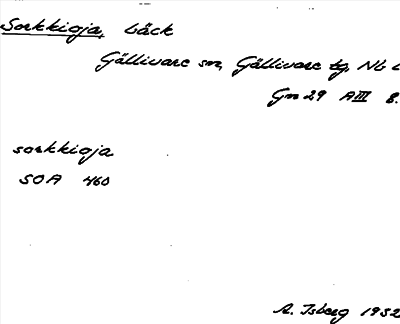 Sorkkioja, bäck
Gällivare sn, Gällivare tg. Nb L
Gm 29 AIII 8.
sorkkioja
SOA 460
A. Isberg 1932